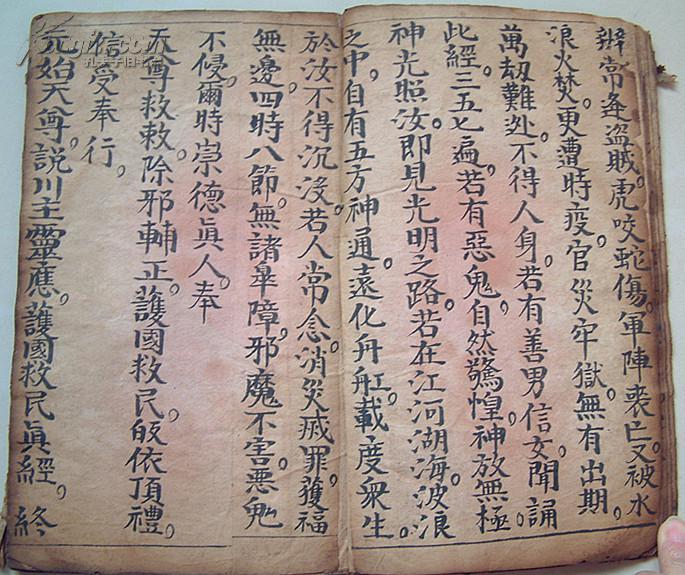 辨常逢盜賊。虎咬蛇傷。軍陣喪亡。又被水
浪火焚。更遭時疫。官災牢獄。無有出期。
萬劫難処。不得人身。若有善男信女。聞誦
此經。三五七遍。若有惡鬼。自然驚惶。神放無極
神光照汝。即見光明之路。若在江河湖海。波浪
之中。自有五方神通。遠化舟舡。載度衆生。
於汝不得沉没。若人常念。消災滅罪。獲福
無邊。四時八節。無諸辠障。邪魔不害。惡鬼
不侵。爾時崇德眞人。奉
天尊救敕。除邪輔正。護國救民。皈依頂禮。
信受奉行。
元始天尊。説川主靈應。護國救民眞經。終